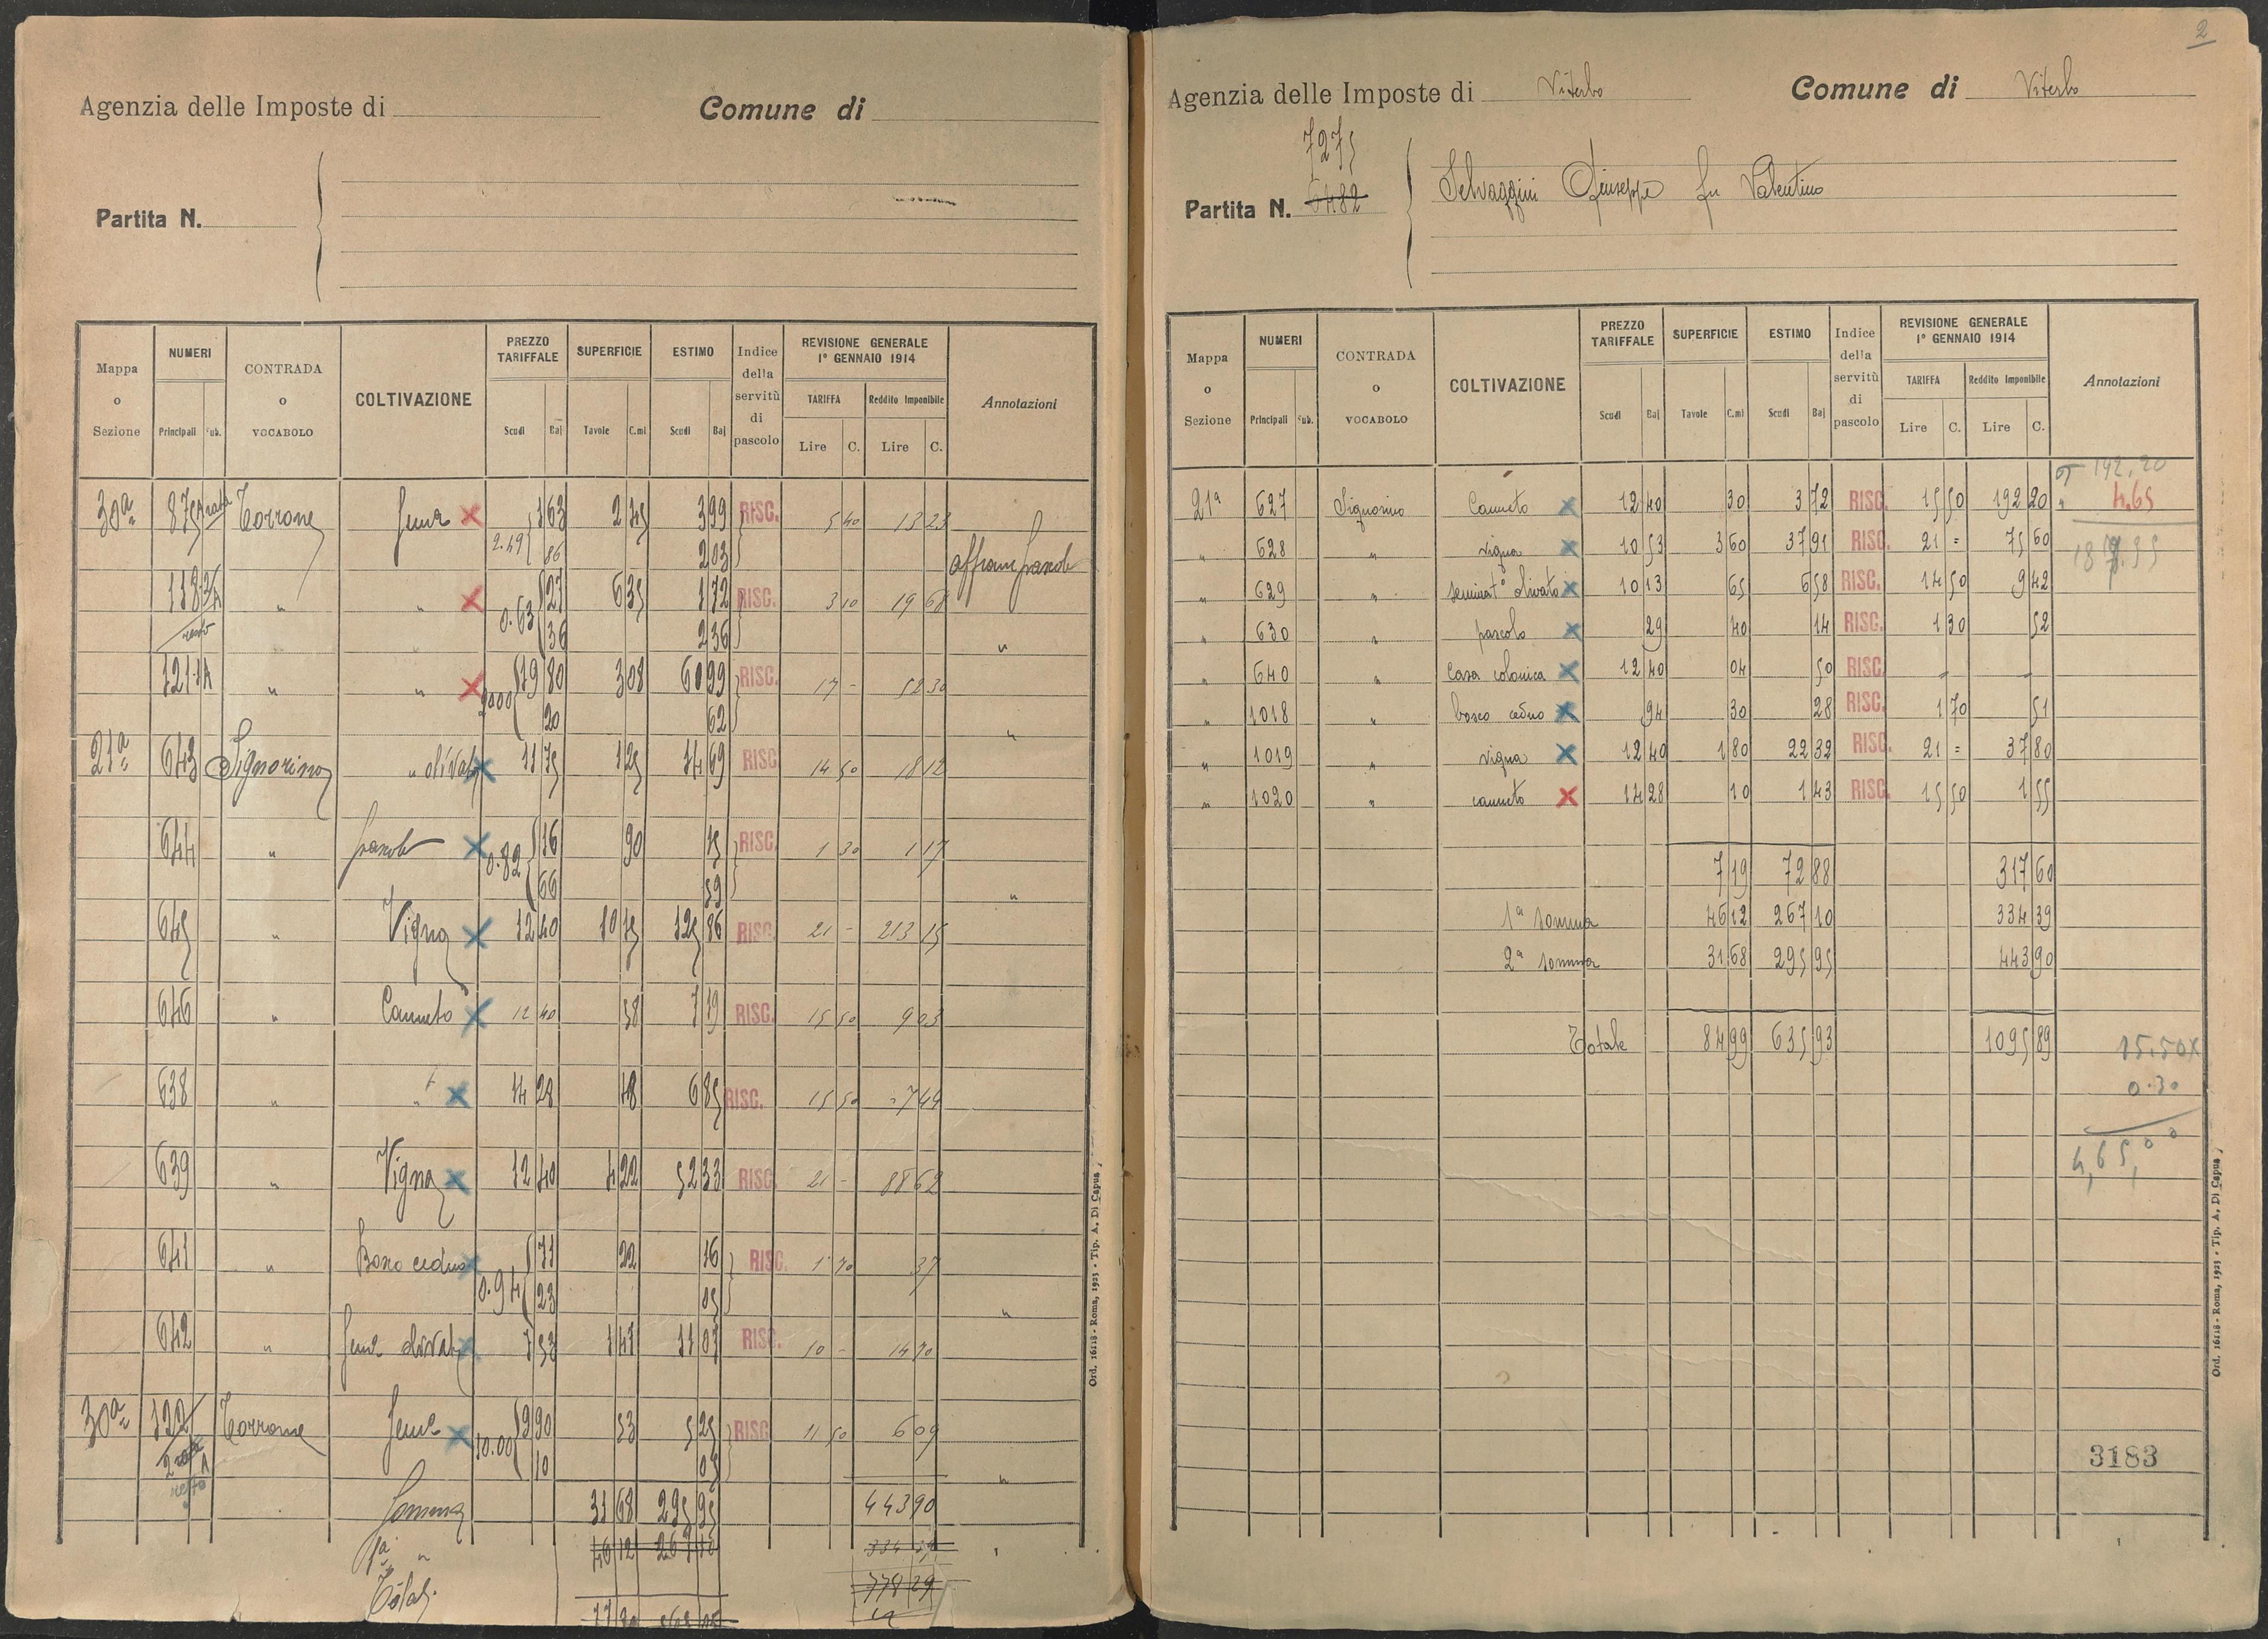 Agenzia delle Imposte di
Comune di
Partita N.
Mappa o Sezione | NUMERI Principali Sub. | CONTRADA o VOCABOLO | COLTIVAZIONE | PREZZO TARIFFALE Scudi Baj | SUPERFICIE Tavole C.mi | ESTIMO Scudi Baj | Indice della servitù di pascolo | REVISIONE GENERALE 1° GENNAIO 1914 TARIFFA Lire C. Reddito Imponibile Lire C. | Annotazioni
30a 875 Torrone Sem° 1 63 2 45 3 99 RISC. 5 40 13 23
2.49 86 2 03 affranc pascolo
118 3/A " " 27 6 35 1 72 RISC. 3 10 19 68
resto 0.63 36 2 36 "
121 1A " " 19 80 3 08 60 99 RISC. 17 - 52 36
2000 20 62 "
21a 643 Signorino " olivato 11 75 1 25 14 69 RISC 14 50 18 12
644 " pascolo 16 90 15 RISC. 1 30 1 17
0.82 66 59 "
645 " Vigna 12 40 10 15 125 86 RISC. 21 - 213 15
646 " Canneto 12 40 58 7 19 RISC. 15 50 9 03
638 " " 14 28 48 6 85 RISC. 15 50 7 44
639 " Vigna 12 40 4 22 52 33 RISC 21 - 88 62
641 " Bosco ceduo 71 22 16 RISC. 1 70 37
0.94 23 05 "
642 " Sem° olivato 7 53 1 47 11 07 RISC. 10 - 14 70
30a 122 Torrone Sem° 9 90 53 5 25 RISC 11 50 6 09
resto 10.00 10 05 "
Somma 31 68 295 95 443 90
1a " 46 12 267 10 334 39
Totali 778 29
Ord. 16118 - Roma, 1923 - Tip. A. Di Capua
2
Agenzia delle Imposte di Viterbo
Comune di Viterbo
7275
Partita N. 6482 Selvaggini Giuseppe fu Valentino
Mappa o Sezione | NUMERI Principali Sub. | CONTRADA o VOCABOLO | COLTIVAZIONE | PREZZO TARIFFALE Scudi Baj | SUPERFICIE Tavole C.mi | ESTIMO Scudi Baj | Indice della servitù di pascolo | REVISIONE GENERALE 1° GENNAIO 1914 TARIFFA Lire C. Reddito Imponibile Lire C. | Annotazioni
192,20
21a 627 Signorino Canneto 12 40 30 3 72 RISC. 15 50 192 20 " 4.65
" 628 " vigna 10 53 3 60 37 91 RISC. 21 = 75 60
" 629 " seminat° olivato 10 13 65 6 58 RISC. 14 50 9 42
" 630 " pascolo 29 40 14 RISC. 1 30 52
" 640 " casa colonica 12 40 04 50 RISC. - -
" 1018 " bosco ceduo 94 30 28 RISC. 1 70 51
" 1019 " vigna 12 40 1 80 22 32 RISC. 21 = 37 80
" 1020 " canneto 14 28 10 1 43 RISC. 15 50 1 55
7 19 72 88 317 60
1a somma 46 12 267 10 334 39
2a somma 31 68 295 95 443 90
Totale 84 99 635 93 1095 89
15.50x
0.30
4,65,00
3183
Ord. 16118 - Roma, 1923 - Tip. A. Di Capua